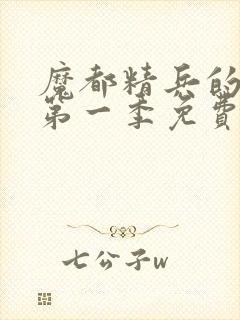 魔都精兵的
第一季免费
七公子w